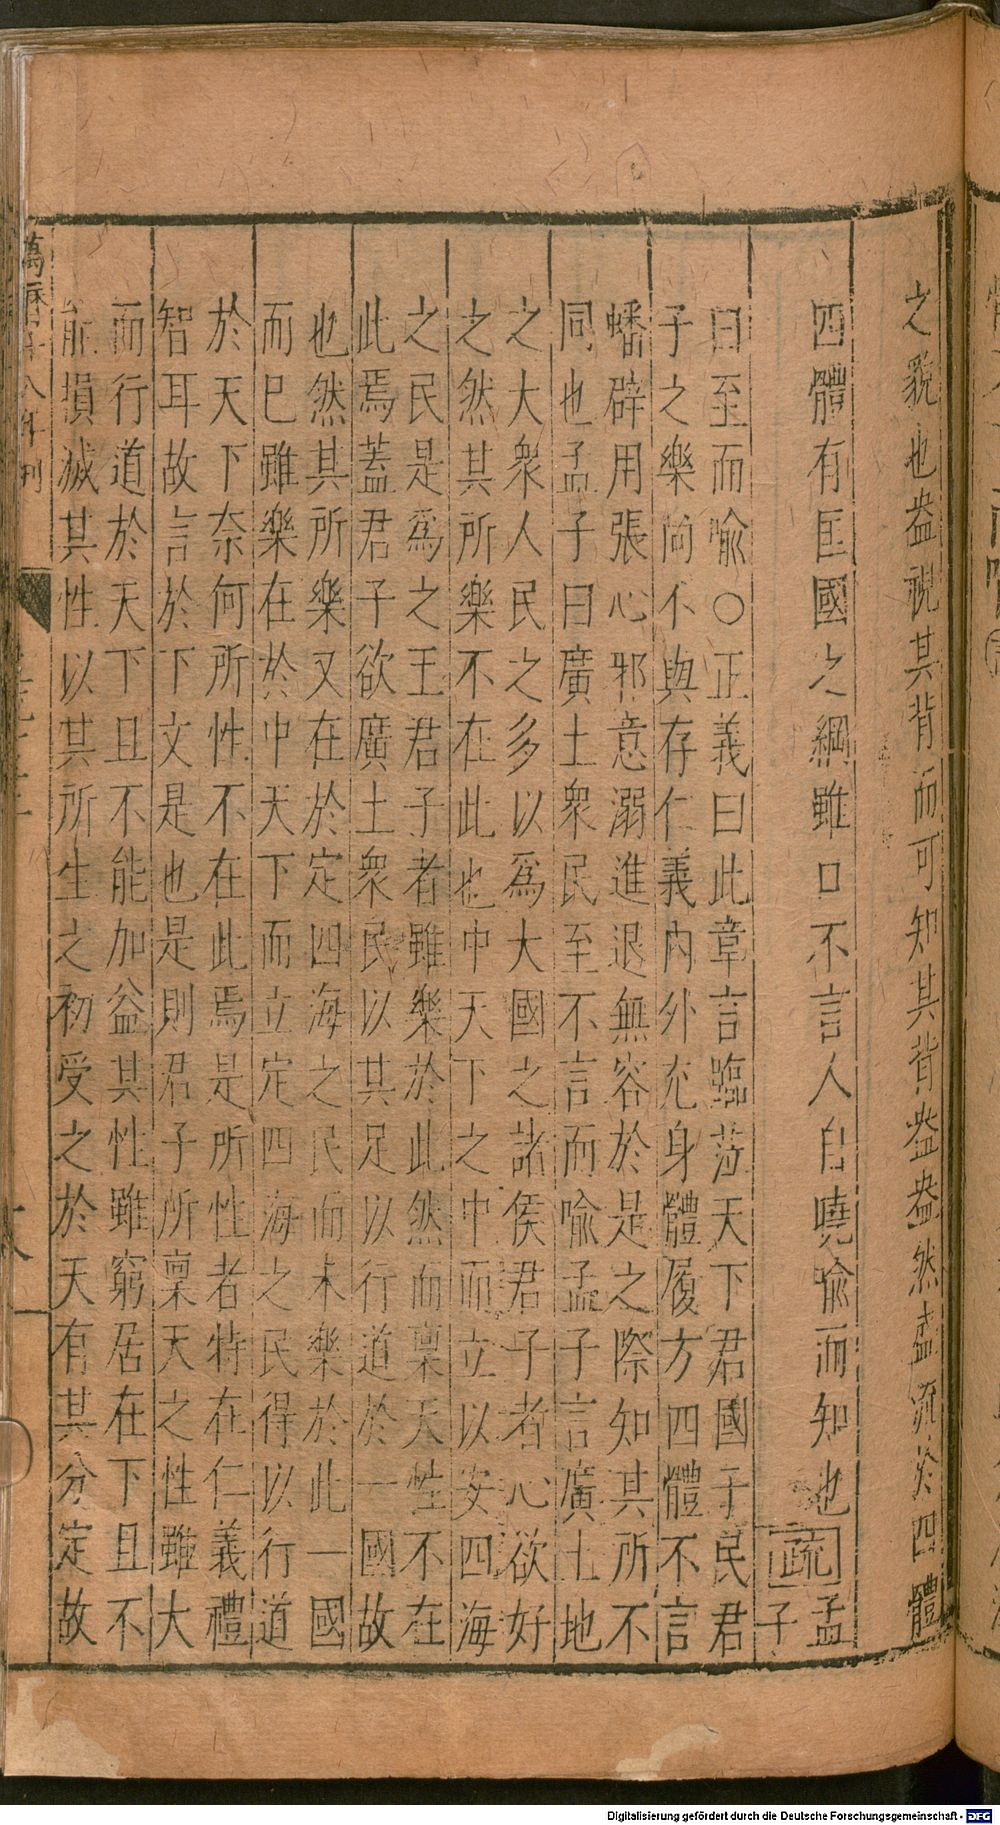 之貌也盎視其背而可知其背盎盎然盛流於四體
四體有匡國之綱雖口不言人自曉喻而知也疏孟
子
曰至而喻○正義曰此章言臨莅天下君國子民君
子之樂尚不與存仁義內外充身體履方四體不言
蟠辟用張心邪意溺進退無容於是之際知其所不
同也孟子曰廣土衆民至不言而喻孟子言廣土地
之大衆人民之多以爲大國之諸侯君子者心欲好
之然其所樂不在此也中天下之中而立以安四海
之民是爲之王君子者雖樂於此然而稟天性不在
此焉蓋君子欲廣土衆民以其足以行道於一國故
也然其所樂又在於定四海之民而未樂於此一國
而巳雖樂在於中天下而立定四海之民得以行道
於天下奈何所性不在此焉是所性者特在仁義禮
智耳故言於下文是也是則君子所稟天之性雖大
而行道於天下且不能加益其性雖窮居在下且不
能損滅其性以其所生之初受之於天有其分定故
萬曆十八年刊
Digitalisierung gefördert durch die Deutsche Forschungsgemeinschaft - DFG